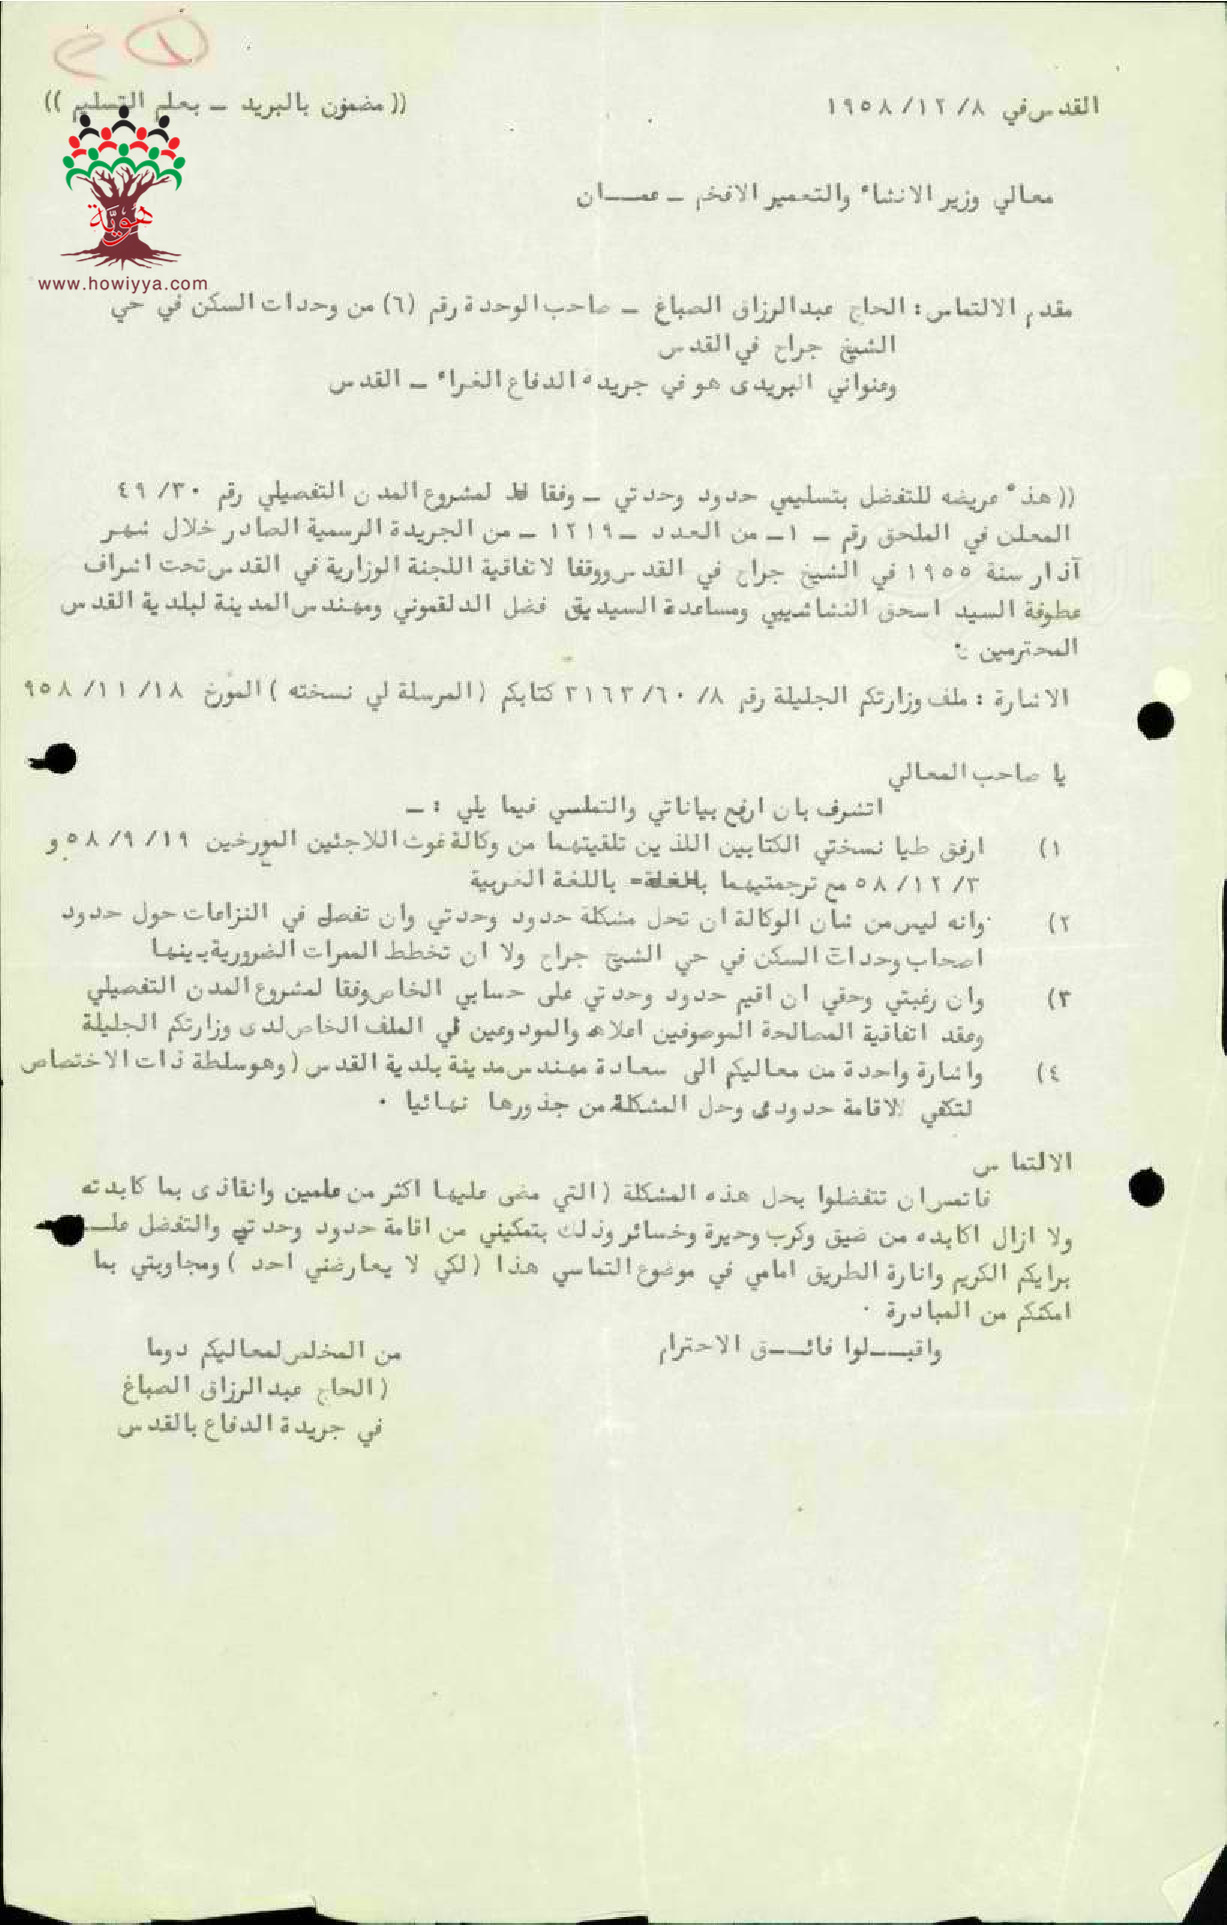 القدس في ٨ /١٢ /١٩٥٨
(( مضمون بالبريد – بعلم التسليم ))
هوية
www.howiyya.com
معالي وزير الانشاء والتعمير الافخم – عمـــان
مقدم الالتماس : الحاج عبدالرزاق الصباغ – صاحب الوحدة رقم (٦) من وحدات السكن في حي
الشيخ جراح في القدس
وعنواني البريدى هو في جريدة الدفاع الغراء – القدس
(( هذه عريضه للتفضل بتسليمي حدود وحدتي – وفقا لمشروع المدن التفصيلي رقم ٣٠ /٤٩
المعلن في الملحق رقم – ١– من العدد – ١٢١٩ – من الجريدة الرسمية الصادر خلال شهر
آذار سنة ١٩٥٥ في الشيخ جراح في القدس ووفقا لاتفاقية اللجنة الوزارية في القدس تحت اشراف
عطوفة السيد اسحق النشاشيبي ومساعدة السيد فضل الدلقموني ومهندس المدينة لبلدية القدس
المحترمين :
الاشارة : ملف وزارتكم الجليلة رقم ٨ /٦٠ /٣١٦٣ كتابكم (المرسلة لي نسخته ) المؤرخ ١٨ /١١ /٩٥٨
يا صاحب المعالي
اتشرف بان ارفع بياناتي والتماسي فيما يلي : –
١) ارفق طيا نسختي الكتابين اللذين تلقيتهما من وكالة غوث اللاجئين المؤرخين ١٩ /٩ /٥٨ و
٣ /١٢ /٥٨ مع ترجمتيهما باللغة العربية
٢) وانه ليس من شان الوكالة ان تحل مشكلة حدود وحدتي وان تفصل في النزاعات حول حدود
اصحاب وحدات السكن في حي الشيخ جراح ولا ان تخطط الممرات الضرورية بينها
٣) وان رغبتي وحقي ان اقيم حدود وحدتي على حسابي الخاص وفقا لمشروع المدن التفصيلي
وعقد اتفاقية المصالحة الموصوفين اعلاه والمودوعين في الملف الخاص لدى وزارتكم الجليلة
٤) واشارة واحدة من معاليكم الى سعادة مهندس مدينة بلدية القدس (وهو سلطة ذات الاختصاص
لتكفي لاقامة حدودى وحل المشكلة من جذورها نهائيا .
الالتماس
فاتمس ان تتفضلوا بحل هذه المشكلة (التي مضى عليها اكثر من عامين وانقاذى بما كابدته
ولا ازال اكابده من ضيق وكرب وحيرة وخسائر وذلك بتمكيني من اقامة حدود وحدتي والتفضل علـــى
برايكم الكريم وانارة الطريق امامي في موضوع التماسي هذا (لكي لا يعارضني احد ) ومجاوبتي بما
امكنكم من المبادرة .
واقبـــلوا فائـــق الاحترام
من المخلص لمعاليكم دوما
(الحاج عبدالرزاق الصباغ
في جريدة الدفاع بالقدس